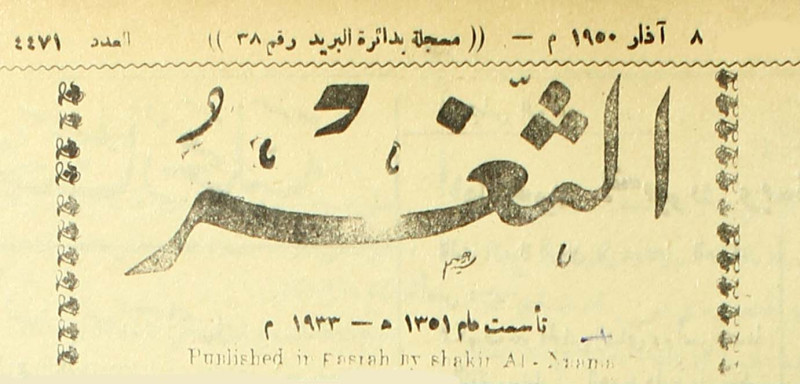 ٨ آذار ١٩٥٠ م — (( مسجلة بدائرة البريد رقم ٣٨ )) العدد ٤٤٧١
الثَّغْرُ
رحيم
تأسست عام ١٣٥١ ه — ١٩٣٣ م
Published in Basrah By shakir At-Niama